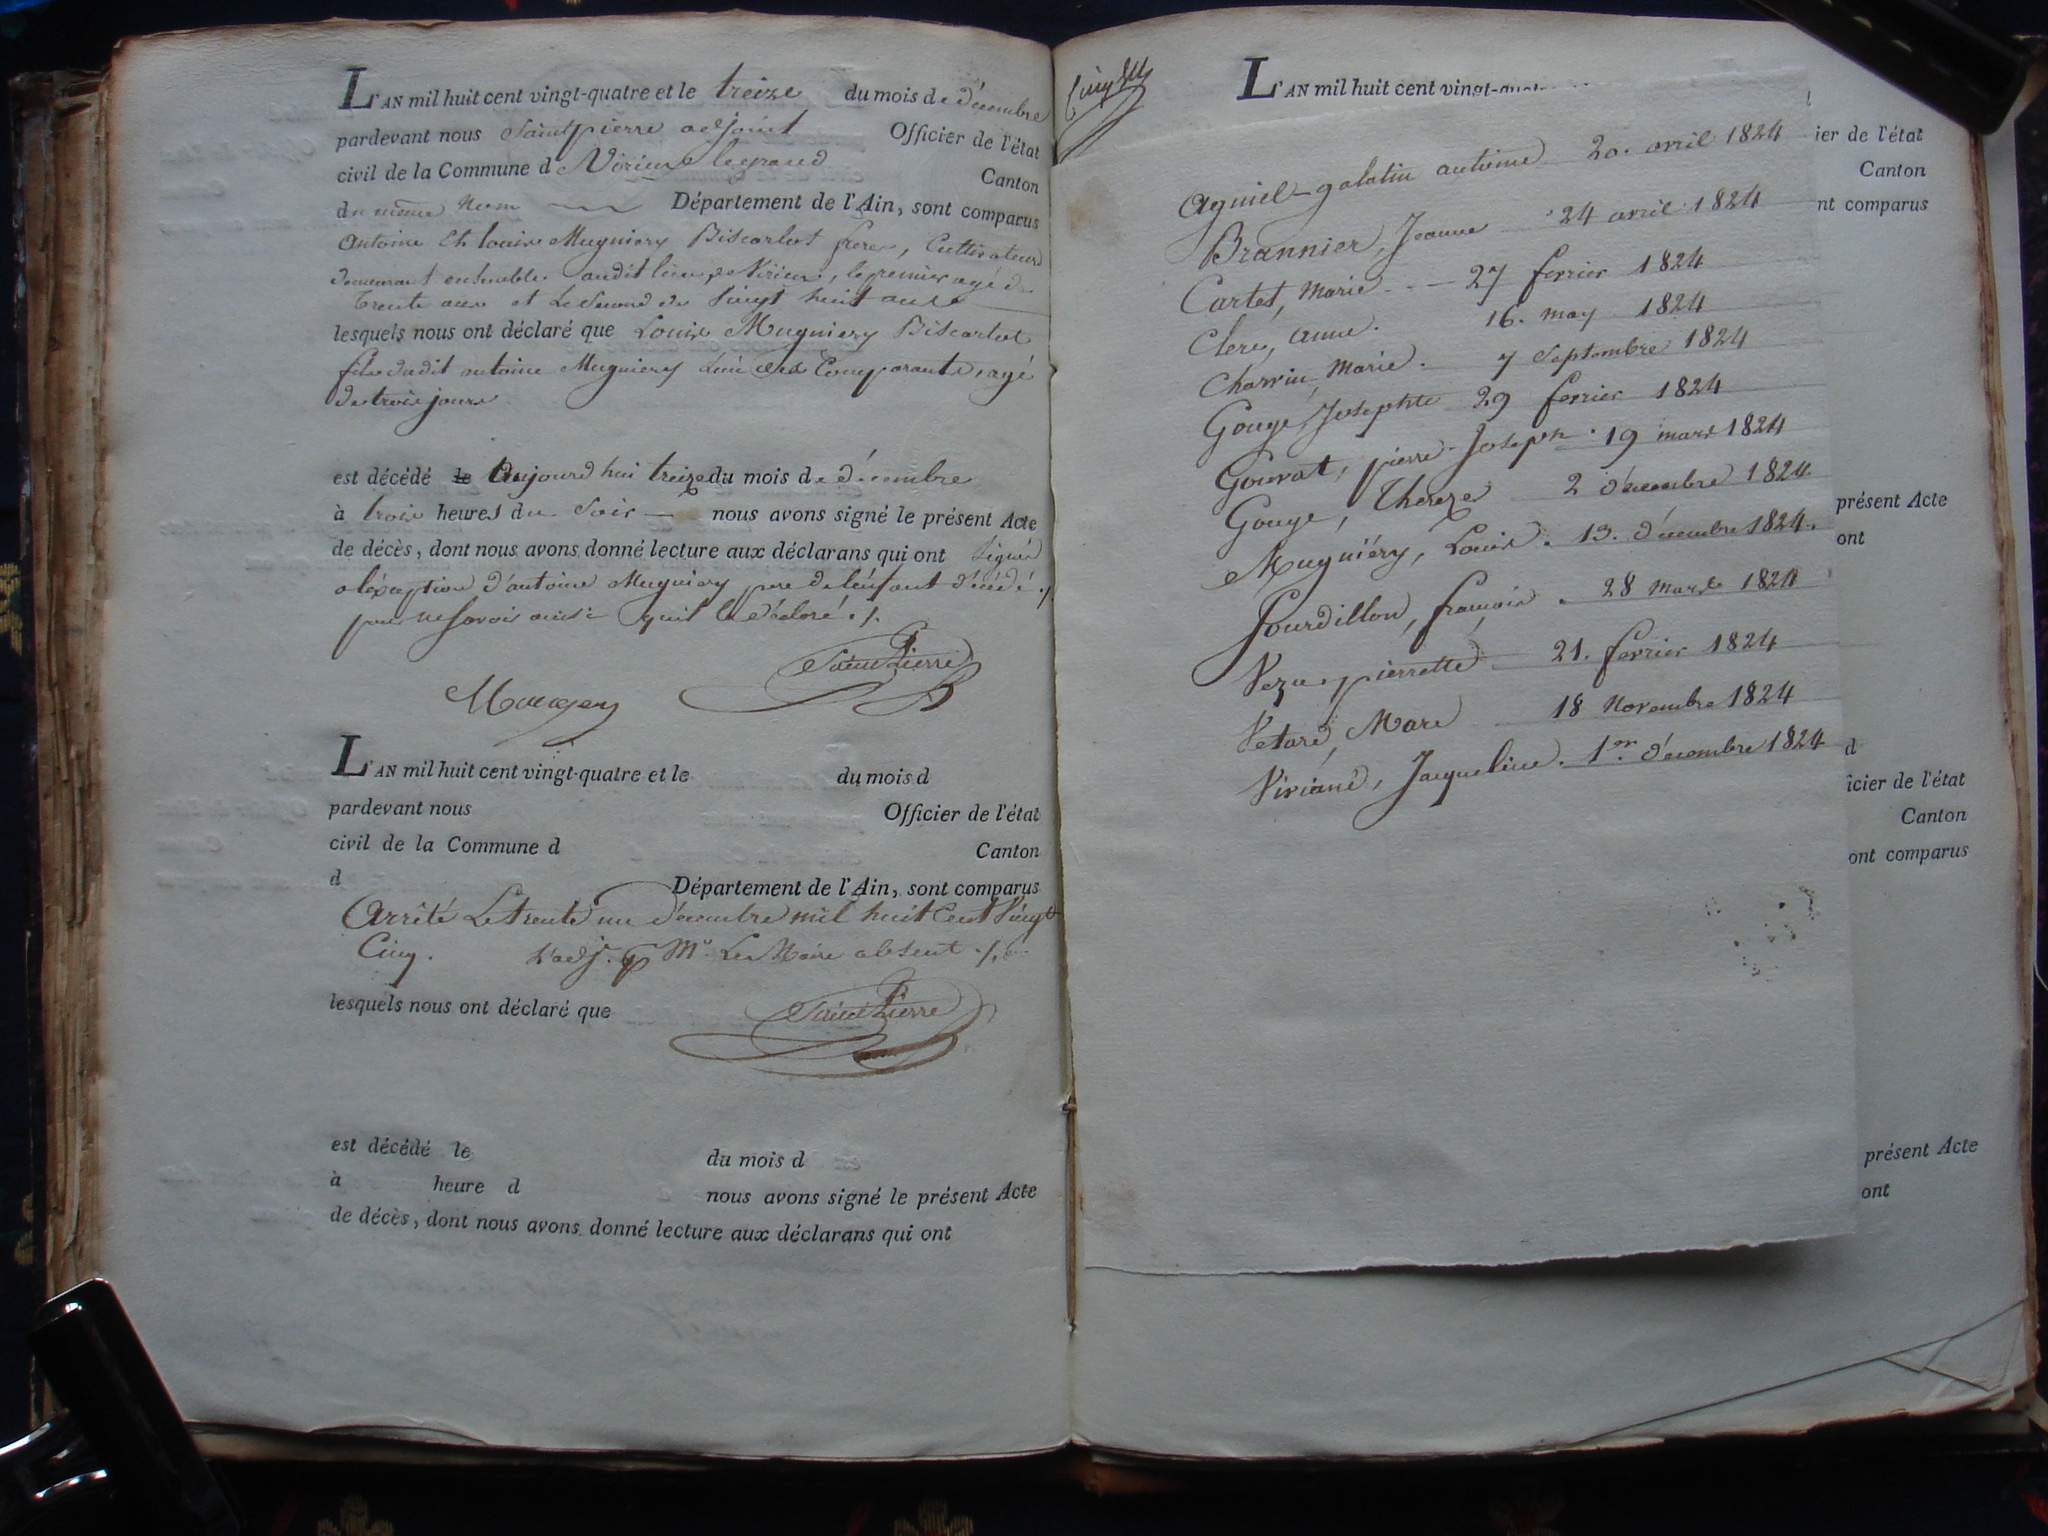 L'AN mil huit cent vingt-quatre et le treize du mois de décembre
pardevant nous Saintpierre adjoint Officier de l'état
civil de la Commune d Virieu le grand Canton
du même nom Département de l'Ain, sont comparus
Antoine et louis Mugniery Biscarlet frere, Cultivateurs
demeurant ensemble audit lieu de Virieu, le premier agé de
trente ans et le Second de Vingt huit ans
lesquels nous ont déclaré que Louis Mugniery Biscarlet
fils dudit antoine Mugniery L'un des Comparants, agé
de trois jours
est décédé le aujourd'hui treize du mois de décembre
à trois heures du Soir nous avons signé le présent Acte
de décès, dont nous avons donné lecture aux déclarans qui ont Signé
a l'éxception d'antoine Mugniery pere de l'enfant décédé
pour ne savoir ainsi qu'il l'a déclaré ./.
SaintPierre
L'AN mil huit cent vingt-quatre et le du mois d
pardevant nous Officier de l'état
civil de la Commune d Canton
d Département de l'Ain, sont comparus
Arrêté Le trente un décembre mil huit Cent Vingt
Cinq. L'adj. Mr. Le Maire absent ./.
lesquels nous ont déclaré que
SaintPierre
est décédé le du mois d
à heure d nous avons signé le présent Acte
de décès, dont nous avons donné lecture aux déclarans qui ont
L'AN mil huit cent vingt-quat
ier de l'état
Canton
nt comparus
Agniel-galatin antoine 20. avril 1824
Brannier, Jeanne 24 avril 1824
Cartet, Marie - - - 27 fevrier 1824
Clerc, anne. 16. may 1824
Charvin, Marie. 7 Septembre 1824
Gouge, Josephte 29 fevrier 1824
Gouvat, pierre-Joseph 19 mars 1824
Gouge, Thereze 2 décembre 1824.
Mugniéry, Louis. 13. décembre 1824.
Jourdillon, françois. 28 Mars 1824
Vezu, pierrette 21. fevrier 1824
Vetard, Marc 18 Novembre 1824
Viviand, Jacqueline. 1er. décembre 1824
présent Acte
ont
d
icier de l'état
Canton
ont comparus
présent Acte
ont